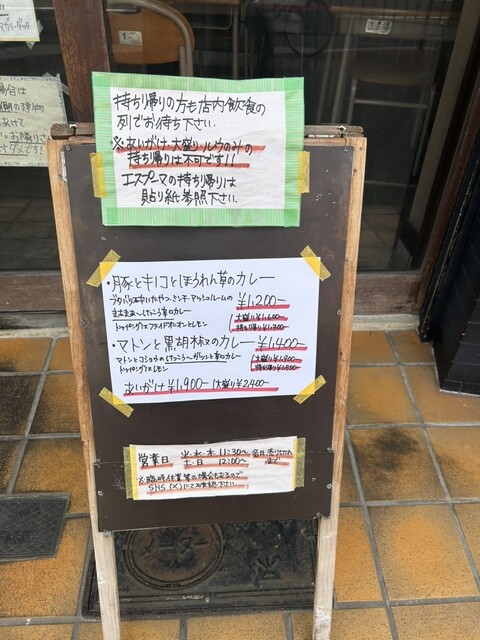 持ち帰りの方も店内飲食の
列でお待ち下さい。
※あいがけ・大盛り・ルウのみの
持ち帰りは不可です!!
エスプーマの持ち帰りは
貼り紙参照下さい。
・豚とキノコとほうれん草のカレー
¥1,200-
大盛り¥1,600
持ち帰り¥1,300
トッピングはフライドオニオンとレモン
・マトンと黒胡椒のカレー ¥1,400-
大盛り¥1,900
持ち帰り¥1,500
トッピングはレモン
あいがけ¥1,900- 大盛り¥2,400-
営業日 火・水・木 11:30〜 各日売り切れ
土・日 12:00〜 まで
※臨時休業等の場合もあるので
SNS(X)にてご確認下さい。